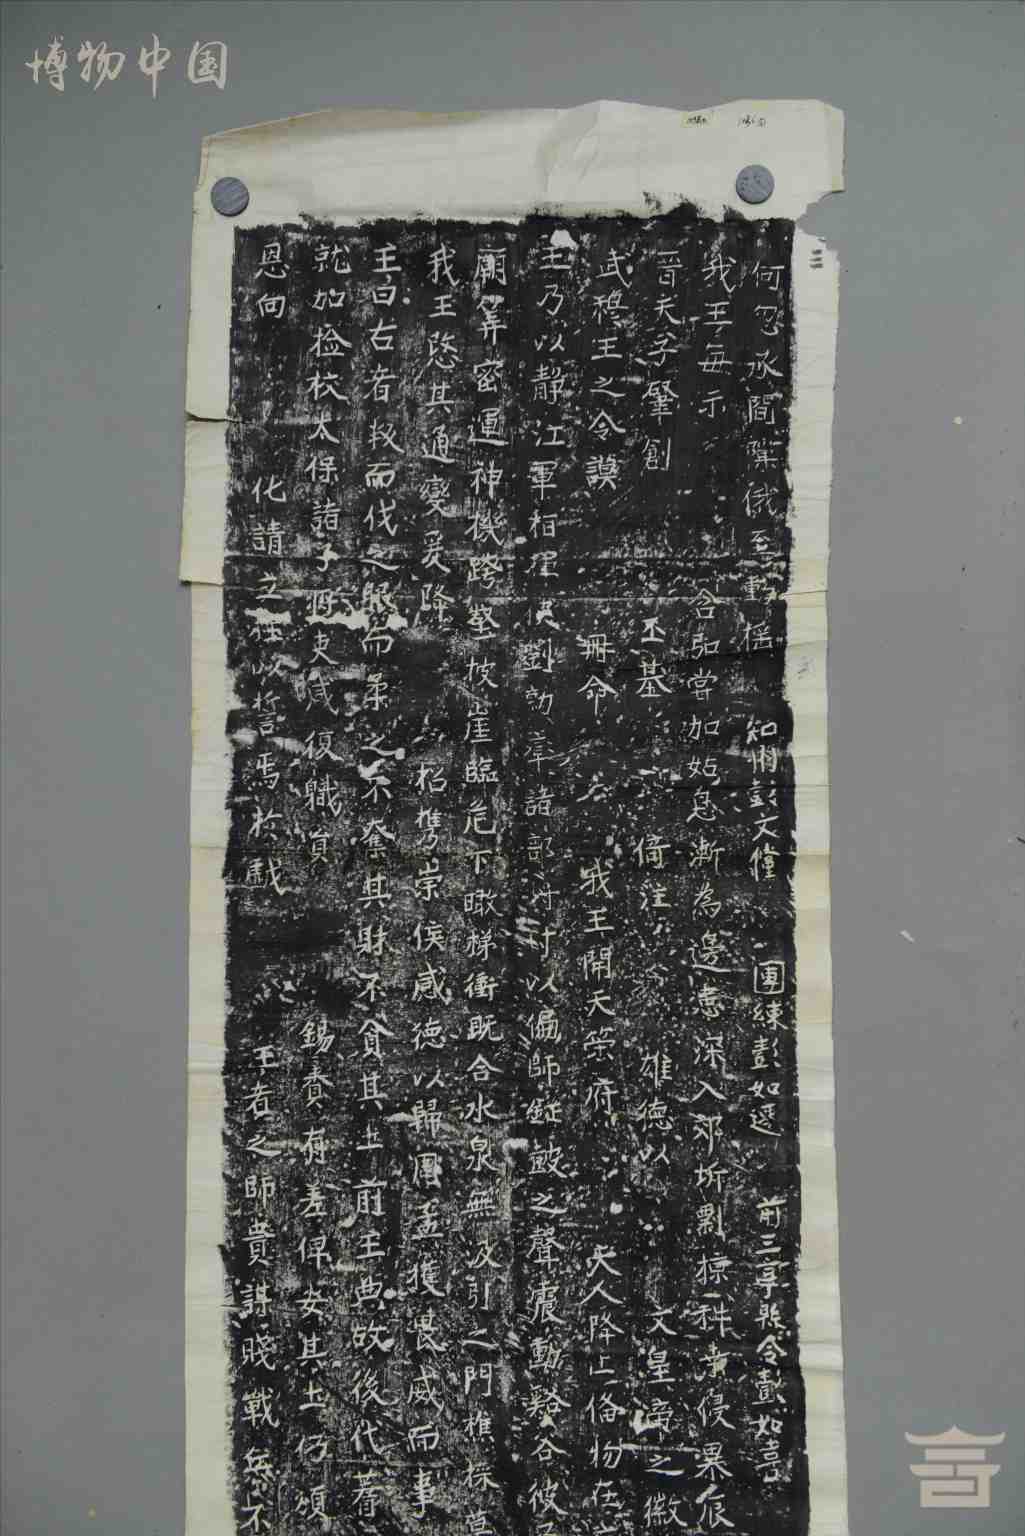 博物中国
三
何忽承間隙俄至動搖 知州彭文 團練彭如遷 前三亭縣令彭如喜
我王每示 含弘嘗加姑息漸為邊患深入郊圻剽掠耕桑侵暴辰
晋天子肇創 丕基 倚注 雄德以 文皇帝之徽
武穆王之令謨 冊命 我王開天策府 天人降止俻物在
王乃以静江軍指揮使劉勍率諸部將付以偏師鉦皷之聲震動谿谷彼乃
廟筭密運神機跨壑披崖臨危下瞰梯衝既合水泉無汲引之門樵採莫
我王愍其通變爰降 招携崇侯感德以歸周孟獲畏威而事
王曰古者叛而伐之服而柔之不奪其財不貪其土前王典故後代蓍
就加檢校太保諸子將吏咸復職員 錫賚有差俾安其土仍頒
恩向 化請立柱以誓焉於戲 王者之師貴謀賤戰兵不